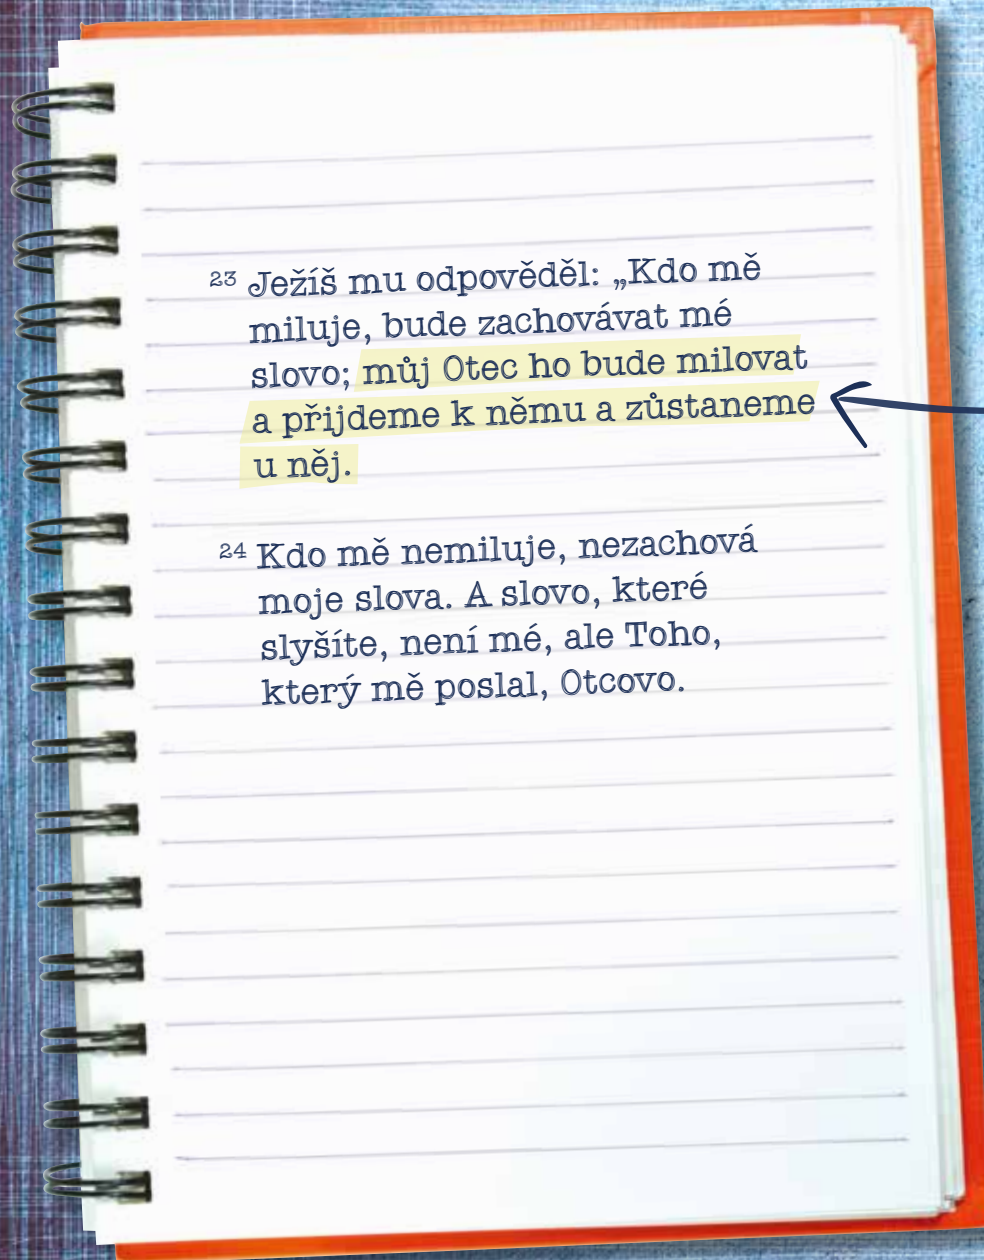 23 Ježíš mu odpověděl: „Kdo mě
miluje, bude zachovávat mé
slovo; můj Otec ho bude milovat
a přijdeme k němu a zůstaneme
u něj.
24 Kdo mě nemiluje, nezachová
moje slova. A slovo, které
slyšíte, není mé, ale Toho,
který mě poslal, Otcovo.